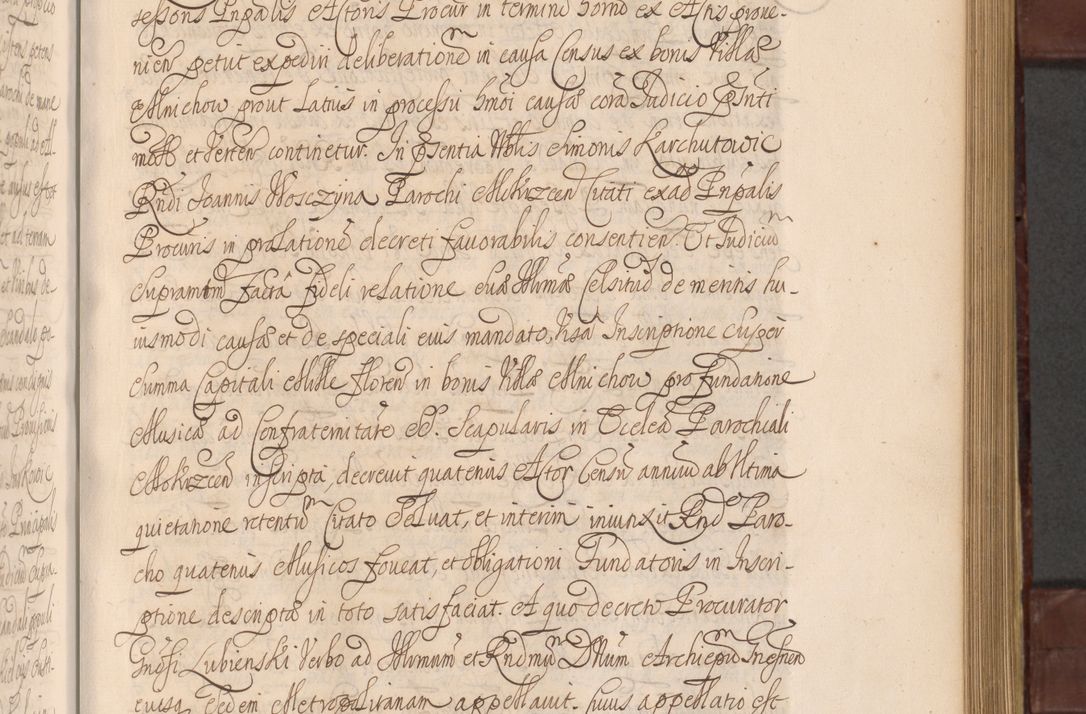 sessoris Pnpalis Actoris Procur in termino horno ex Actis prove-
nien petiit expediri deliberationem in causa Census ex bonis Villæ
Mnichow prout Latius in processu hmoi causæ corã Judicio Pnti
mōtt et Verten continetur. In Pñsentia Nblis Simonis Karchutowic
Rndi Joannis Mosczyna Parochi Mokrzcen Citati ex ad Pnpalis
Procuris in prolatione decreti favorabilis consentien. Et Judiciu
Supramtm facta fideli relatione suæ Illrmæ Celsitud de meritis hu-
iusmodi causæ et de speciali eius mandato, Visa Inscriptione Super
Summa Capitali Mille floren in bonis Villæ Mnichow pro fundatione
Musicæ ad Confraternitatē SS. Scapularis in Eccleã Parochiali
Mokrzcen inscripta, decrevit quatenus Actor Censū annuū ab Ultima
quietatione retentum Citato Solvat, et interim iniunxit Rndo Paro-
cho quatenus Musicos foveat, et obligationi Fundatoris in Inscri-
ptione descriptæ in toto satisfaciat. A quo decreto Procurator
Gnosi Lubienski Verbo ad Illrmum et Rndmum DNum Archiepum Gnesnen
eiusq Sedem Metropolitanam appellavit. Cuius appellatio est